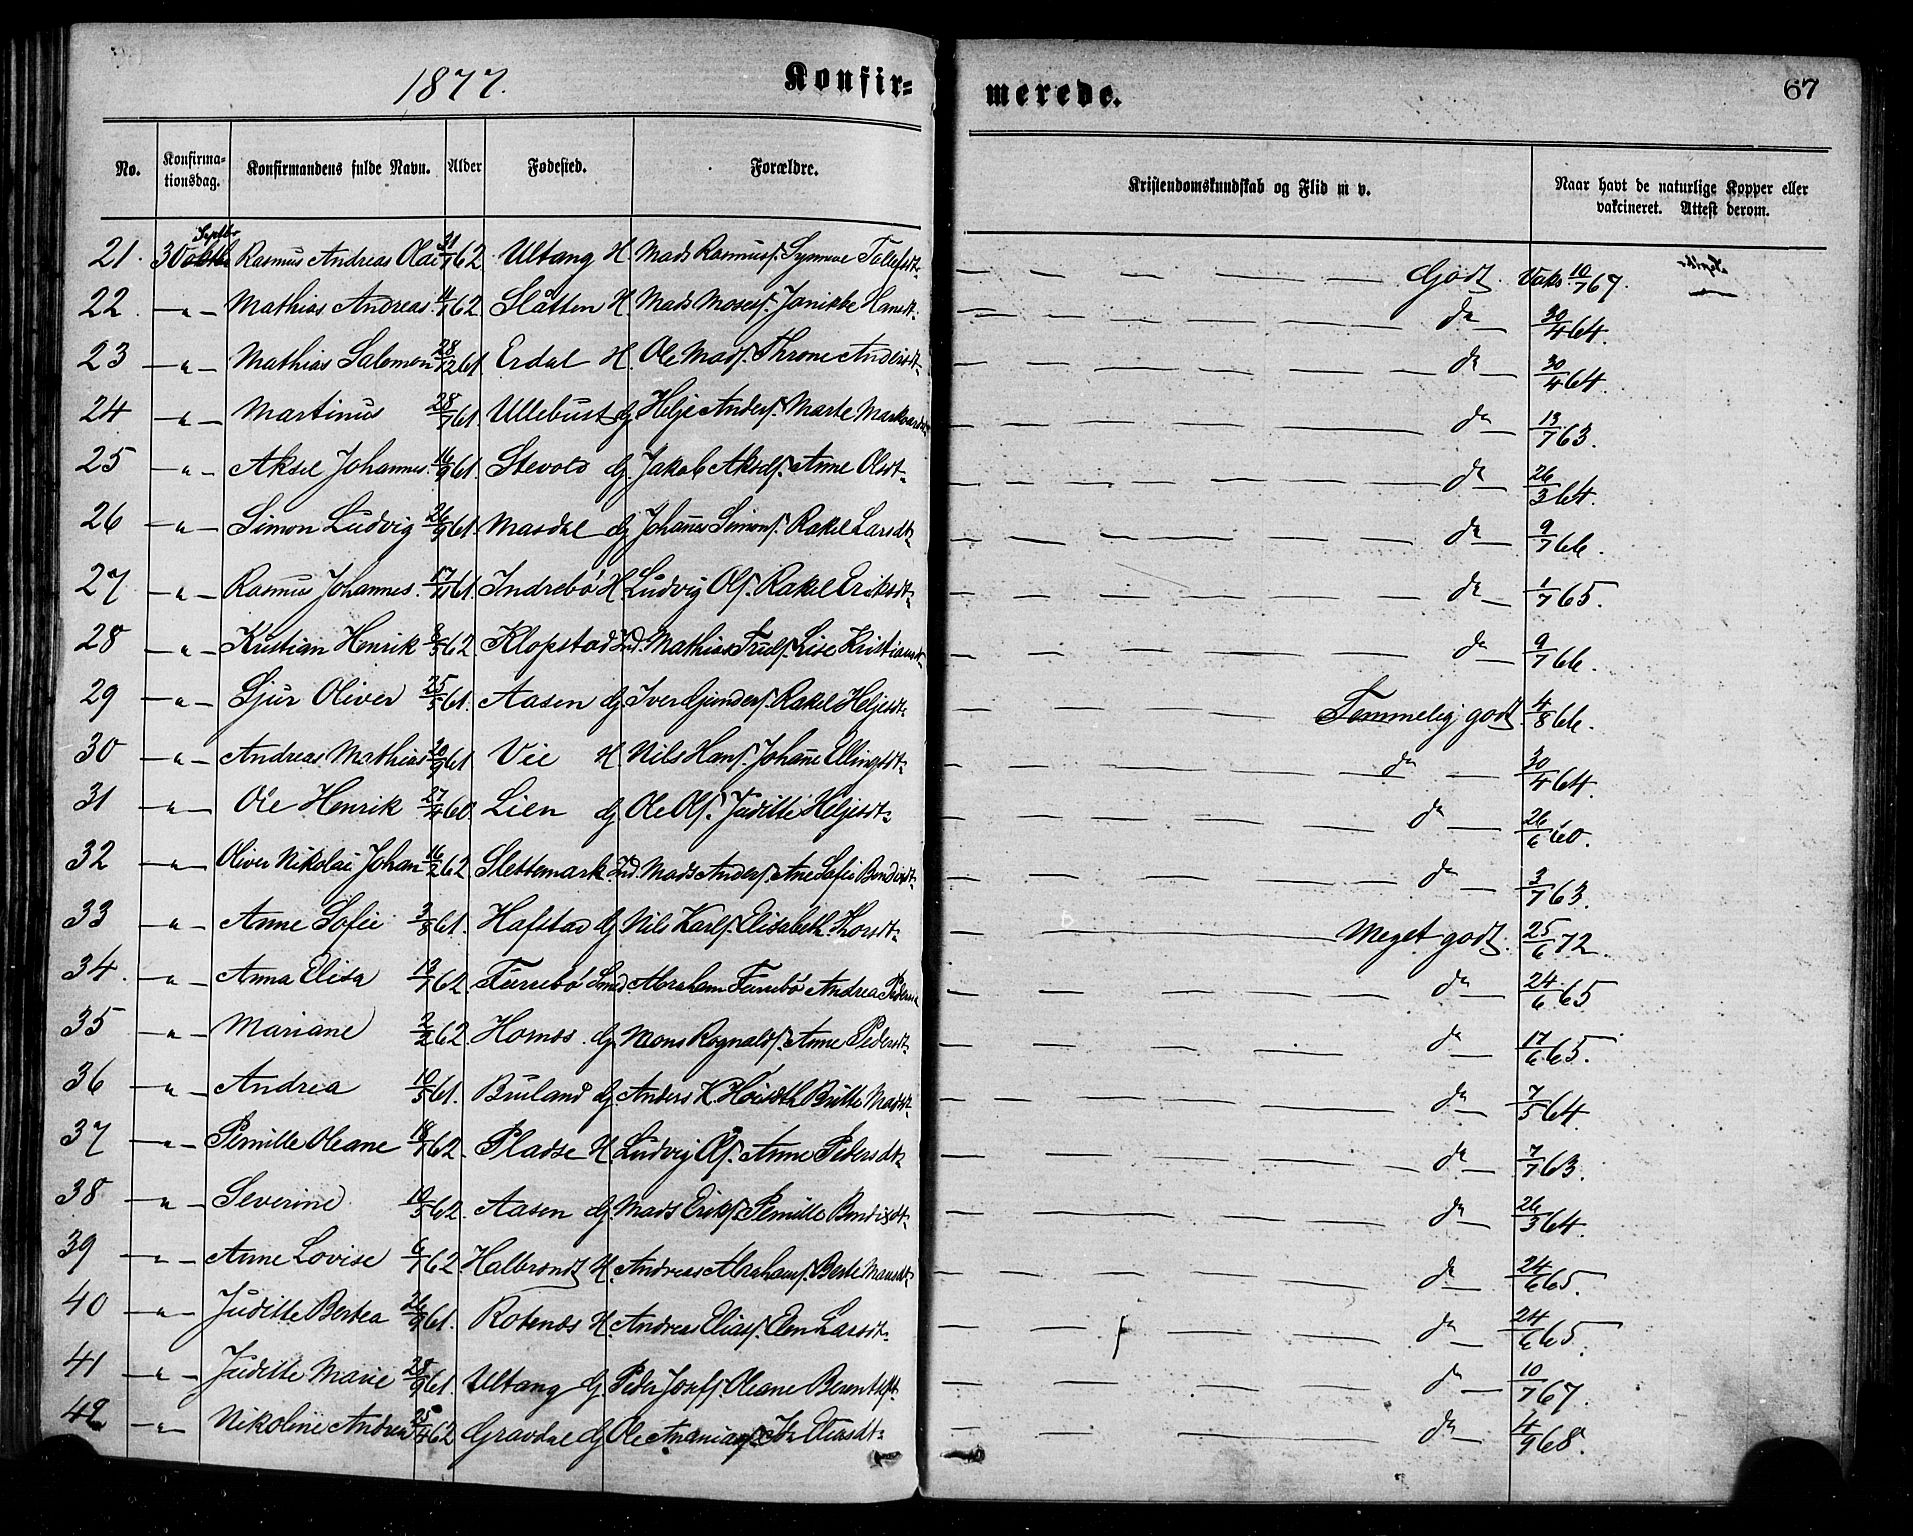 1877. Konfir= merede. 67
No. Konfirma-tionsdag. Konfirmandens fulde Navn. Alder Fødested. Forældre. Kristendomskundskab og Flid m v. Naar havt de naturlige Kopper eller vakcineret. Attest derom.
Septbr
21. 30 Rasmus Andreas Olai 62 Ultang H Mads Rasmusf. Synneve Tollefsdt. Godt. Vaks. 10/7 67.
22 -"- Mathias Andreas 62 Slåtten H. Mads Mosesf. Janikke Hansdt. do 30/4 64.
23 -"- Mathias Salomon 28/12 61. Erdal H. Ole Madsf. Throne Andersdt. do 30/4 64.
24 -"- Martinus 28/7 61. Ullebust dj Helje Andersf. Marte do 13/7 63.
25 -"- Aksel Johannes. 16/9 61. Stevold dj Jakob Akself. Anne Olsdt. do 26/3 64.
26 -"- Simon Ludvig 26/9 61. Masdal dj Johanes Simonsf. Rakel Larsdt. do 9/7 66.
27 -"- Rasmus Johannes. 61. Indrebö H. Ludvig Olsf. Rakel Eriksdt. do 1/7 65.
28 -"- Kristian Henrik 62 Klopstad Ind. Mathias Lise Kristiansdt. do 9/7 66.
29 -"- Sjur Oliver 25/5 61. Aasen dj Iver Gjendesf. Rakel Heljesdt. Temmelig godt 4/8 66.
30 -"- Andreas Mathias 20/9 61 Vie H Nils Hansf. Johane Ellingsdt. do 30/4 64.
31 -"- Ole Henrik 27/4 60. Lien dj Ole Olsf. Juditte Heljesdt. do 26/6 60.
32 -"- Oliver Nikolai Johan 16/2 62. Slettemark. Ind. Mads Andersf. Ane Sofie Bendixdt. do 3/7 63.
33 -"- Anne Sofie 3/8 61. Hafstad dj Nils Karlsf. Elisabeth Meget godt. 25/6 72.
34. -"- Anna Elisa 13/7 62. Furrebö Abraham Furrebö Andrea do 24/6 65
35 -"- Mariane 2/2 62. Hornes. dj Mons Rognaldsf. Anne Pedersdt. do 17/6 65.
36 -"- Andrea 10/5 61. Bruland dj Anders K. Britte Madsdt. do 7/5 64.
37 -"- Pernille Oleane 18/1 62. Pladse H. Ludvig Olsf. Anne Pedersdt. do 7/7 63.
38 -"- Severine 10/5 62. Aasen dj. Mads Eriksf. Pernille Bendixdt. do 26/3 64.
39 -"- Anne Lovise 6/7 62. Halbrendt H. Andreas Abrahamsf. Berte Monsdt. do 24/6 65.
40 -"- Juditte Bertea 26/9 61. Rotenes H. Andreas Eliasf. Elen Larsdt. do 24/6 65.
41 -"- Juditte Marie 28/9 61. Ultang dj. Peder Josefsf. Oleane Berentsdt. do 10/7 67.
42 -"- Nikoline Andrea 25/4 62 Gravdal dj Ole Ananiasf. do 4/9 68.